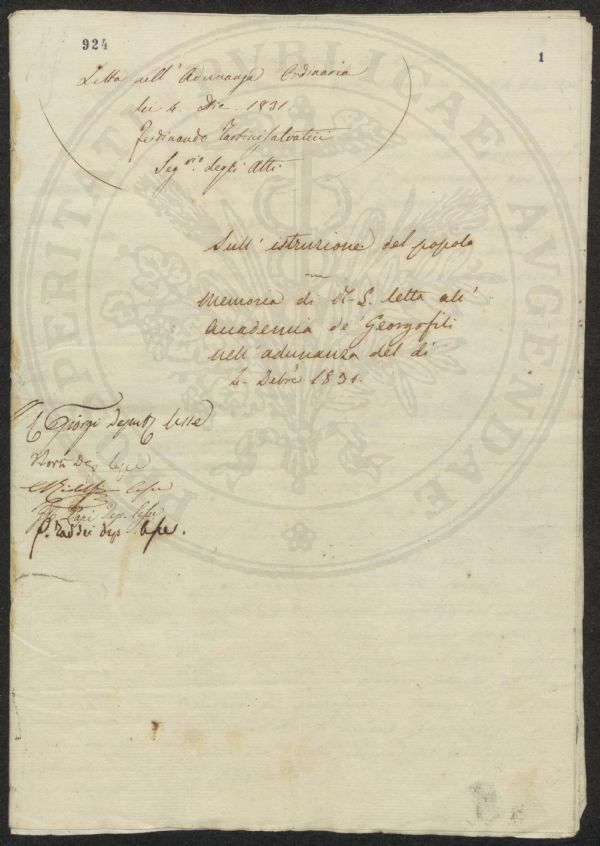 924
1
Letta nell' Adunanza Ordinaria
dei 4. Dic. 1831
Ferdinando Tartini Salvatici
Seg.rio degli Atti
Sull' istruzione del popolo
Memoria di letta all'
Accademia de' Georgofili
nell' adunanza del dì
4. Debre 1831.
Giorgi Deput. lesse
Dep. lesse
Ridolfi lesse
Dep. lesse
Taddei dep. lesse.
PROSPERITATI PVBLICAE AVGENDAE